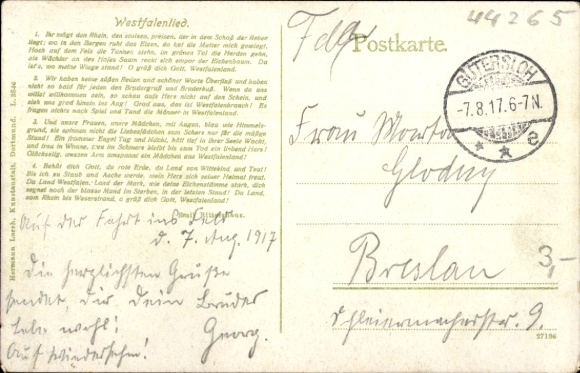 Westfalenlied.
1. Ihr mögt den Rhein, den stolzen, preisen, der in dem Schoß der Reben
liegt; wo in den Bergen ruht das Eisen, da hat die Mutter mich gewiegt.
Hoch auf dem Fels die Tannen stehn, im grünen Tal die Herden gehn,
als Wächter an des Hofes Saum reckt sich empor der Eichenbaum. Da
ist's, wo meine Wiege stand! O grüß dich Gott, Westfalenland.
2. Wir haben keine süßen Reden und schöner Worte Überfluß und haben
nicht so bald für jeden den Brudergruß und Bruderkuß. Wenn du uns
willst willkommen sein, so schau aufs Herz nicht auf den Schein, und
sieh uns grad hinein ins Aug! Grad aus, das ist Westfalenbrauch! Es
fragen nichts nach Spiel und Tand die Männer in Westfalenland.
3. Und unsre Frauen, unsre Mädchen, mit Augen, blau wie Himmels-
grund, sie spinnen nicht die Liebesfädchen zum Scherz nur für die müßge
Stund! Ein frommer Engel Tag und Nacht, hält tief in ihrer Seele Wacht,
und treu in Wonne, treu im Schmerz bleibt bis zum Tod ein liebend Herz!
Glückselig, wessen Arm umspannt ein Mädchen aus Westfalenland!
4. Behüt dich Gott, du rote Erde, du Land von Wittekind und Teut!
Bis ich zu Staub und Asche werde, mein Herz sich seiner Heimat freut.
Du Land Westfalen, Land der Mark, wie deine Eichenstämme stark, dich
segnet noch der blasse Mund im Sterben, in der letzten Stund! Du Land,
zum Rhein bis Weserstrand, o grüß dich Gott, Westfalenland!
Emil Rittershaus.
Auf der Fahrt ins Feld
d. 7. Aug. 1917
Die herzlichsten Grüße
sendet, Dir, Dein Bruder
Lebe wohl! Georg.
Auf Wiedersehn!
Hermann Lorch, Kunstanstalt, Dortmund.
44265
Postkarte.
GÜTERSLOH
-7.8.17.6-7N.
* * e
Frau
Glodny
Breslau
Schleiermacherstr. 9.
3,-
27186